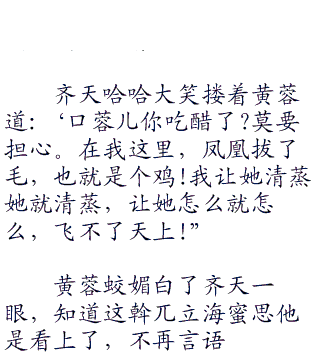 齐天哈哈大笑搂着黄蓉
道：‘口蓉儿你吃醋了?莫要
担心。在我这里，凤凰拔了
毛，也就是个鸡!我让她清蒸
她就清蒸，让她怎么就怎
么，飞不了天上!”
黄蓉蛟媚白了齐天一
眼，知道这斡兀立海蜜思他
是看上了，不再言语